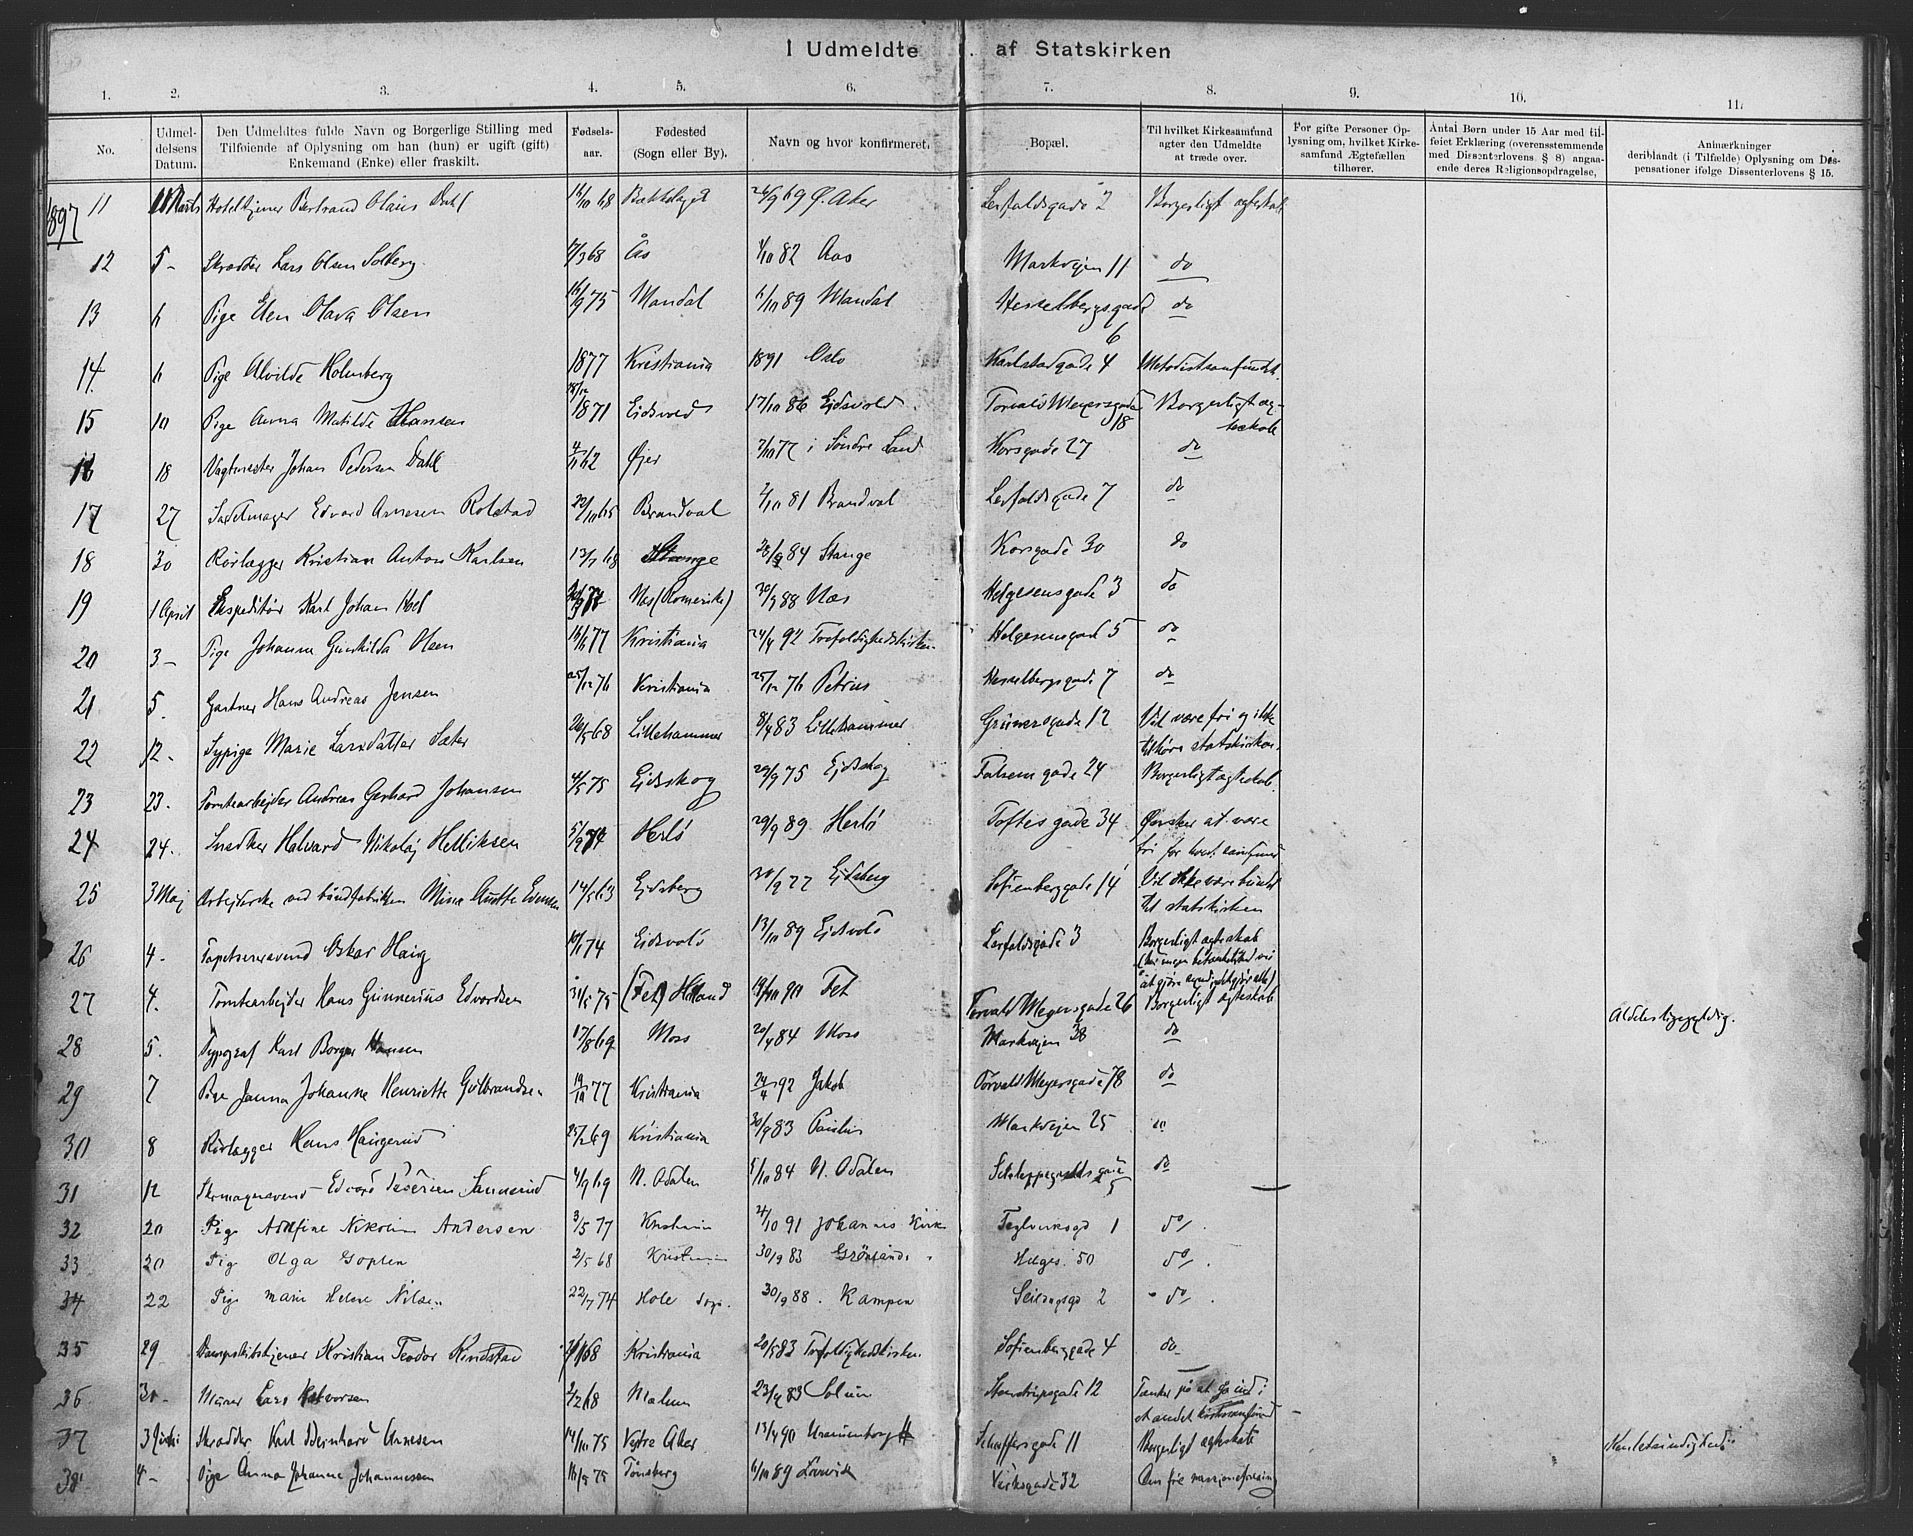 I Udmeldte af Statskirken
1. 2. 3. 4. 5. 6. 7. 8. 9. 10. 11.
No.
Udmeldelsens Datum.
Den Udmeldtes fulde Navn og Borgerlige Stilling med Tilføiende af Oplysning om han (hun) er ugift (gift) Enkemand (Enke) eller fraskilt.
Fødselsaar.
Fødested (Sogn eller By).
Navn og hvor konfirmeret.
Bopæl.
Til hvilket Kirkesamfund agter den Udmeldte at træde over.
For gifte Personer Oplysning om, hvilket Kirkesamfund Ægtefællen tilhører.
Antal Børn under 15 Aar med tilføiet Erklæring (overensstemmende med Dissenterlovens § 8) angaaende deres Religionsopdragelse,
Anmærkninger deriblandt (i Tilfælde) Oplysning om Dispensationer ifølge Dissenterlovens § 15.
1897
11 Marts Bertrand Olaus Dahl 16/10 68 Bækkelaget 26/9 Ø. Aker Leirfaldsgade 2 Borgerligt ægteskab
12 5 - Skrædder Lars Olsen Solberg 68 Ås 1/10 82 Aas Markvejen 11 do
13 6 Pige Elen Olava Olsen 16/9 75 Mandal 6/10 89 Mandal Hesselbergsgade 6 do
14 6 Pige Alvilde Holmberg 1877 Kristiania 1891 Oslo Karlstadgade 4 Metodistsamfundet.
15 10 Pige Anna Matilde Hansen 1871 Eidsvold 17/10 86 Ejdsvold Torvald Meyersgade 18 Borgerligt ægteskab
16 18 Vagtmester Johan Pedersen Dahl 62 Øjer 7/10 77 i Søndre Land Korsgade 27 do
17 27 Sadelmager Edvard Arnesen Rolstad 22/10 65 Brandval 2/10 81 Brandval Leirfaldsgade 7 do
18 30 Rørlægger Kristian Anton Karlsen 13/7 68 Stange 28/9 84 Stange Korsgade 30 do
19 1 April Ekspeditør Karl Johan Hol Nes (Romerike) 30/9 88 Næs Helgesensgade 3 do
20 3 - Pige Johanne Gunhilda Olsen 16/6 77 Kristiania 24/4 92 Trefoldighedskirken Helgesensgade 5 do
21 5. Gartner Hans Andreas Jensen 25/12 76 Kristiania 25/12 76 Petrus Hesselbergsgade 7 do
22 12. Sypige Marie Larsdatter Sæter 26/5 68 Lillehammer 8/4 83 Lillehammer Grünersgade 12 Vil være fri og ikke tilhøre statskirken.
23 23. Tomtearbejder Andreas Gerhard Johansen 4/5 75 Eidskog 29/9 75 Ejdskog Falsensgade 24 Borgerligt ægteskab.
24 24. Snedker Halvard Nikolaj Helliksen 5/9 74 Herlø 29/9 89 Herlø Toftesgade 34 Ønsker at være fri for hvert samfund
25 3 Maj Arbejderske ved båndfabrikken Mina 14/5 63 Ejdsberg 30/9 77 Ejdsberg Sofienberggade 14 Vil ikke være bundet til statskirken
26 4. Tapetserersvend Oskar Haig 74 Eidsvold 13/10 89 Ejdsvold Leirfaldsgade 3 Borgerligt ægteskab
27 4. Tomtearbejder Hans Gunnerius Edvardsen 31/5 75 (Fet) Høland 19/10 90 Fet Torvald Meyersgade 26 Borgerligt ægteskab Aldeles ligegyldig.
28 5. Typograf Karl Borger Hansen 17/8 69 Moss 20/4 84 Moss Markvejen 38 do
29 7 Pige Janna Johanne Henriette Gulbrandsen 19/10 77 Kristiania 24/4 92 Jakob Torvald Meyersgade 78 do
30 8 Rørlægger Hans Haugerud 25/2 69 Kristiania 30/9 83 Paulus Markvejen 25 "
31 12 Skomagersvend Edvard Pedersen Sannerud 4/9 69 N. Odalen 5/10 84 N. Odalen Schleppegrellsgade 5 do
32 20 Pige Adolfine Nikoline Andersen 3/5 77 Kristiania 4/10 91 Johannis Kirke Teglverksgd 1 do.
33 20 Pige Olga Goplen 2/5 68 Kristiania 30/9 83 Grønlands Helges. 50 do.
34 22 Pige Marie Helene Nilsen 22/7 74 Hole Sogn. 30/9 88. Kampen Seildugsgd 2 do.
35 29 Dampskibstjener Kristian Teodor 68 Kristiania 20/5 83 Trefoldighedskirken Sofienberggade 4 do
36 30 - Murer Lars Halvorsen 2/2 68 Melum 23/9 83 Solum Steenstrupsgade 12 Tænker på at gå ind i et andet kirkesamfund
37 3 Juni Skrædder Karl Bernhard Arnesen 14/10 75 Vestre Aker 13/4 90 Uranienborg Schæffersgade 11 Borgerligt ægteskab
38 4 - Pige Anna Johanne Johannessen 16/5 75 Tønsberg 6/10 89 Larvik Verksgade 32 Den frie missionsforening